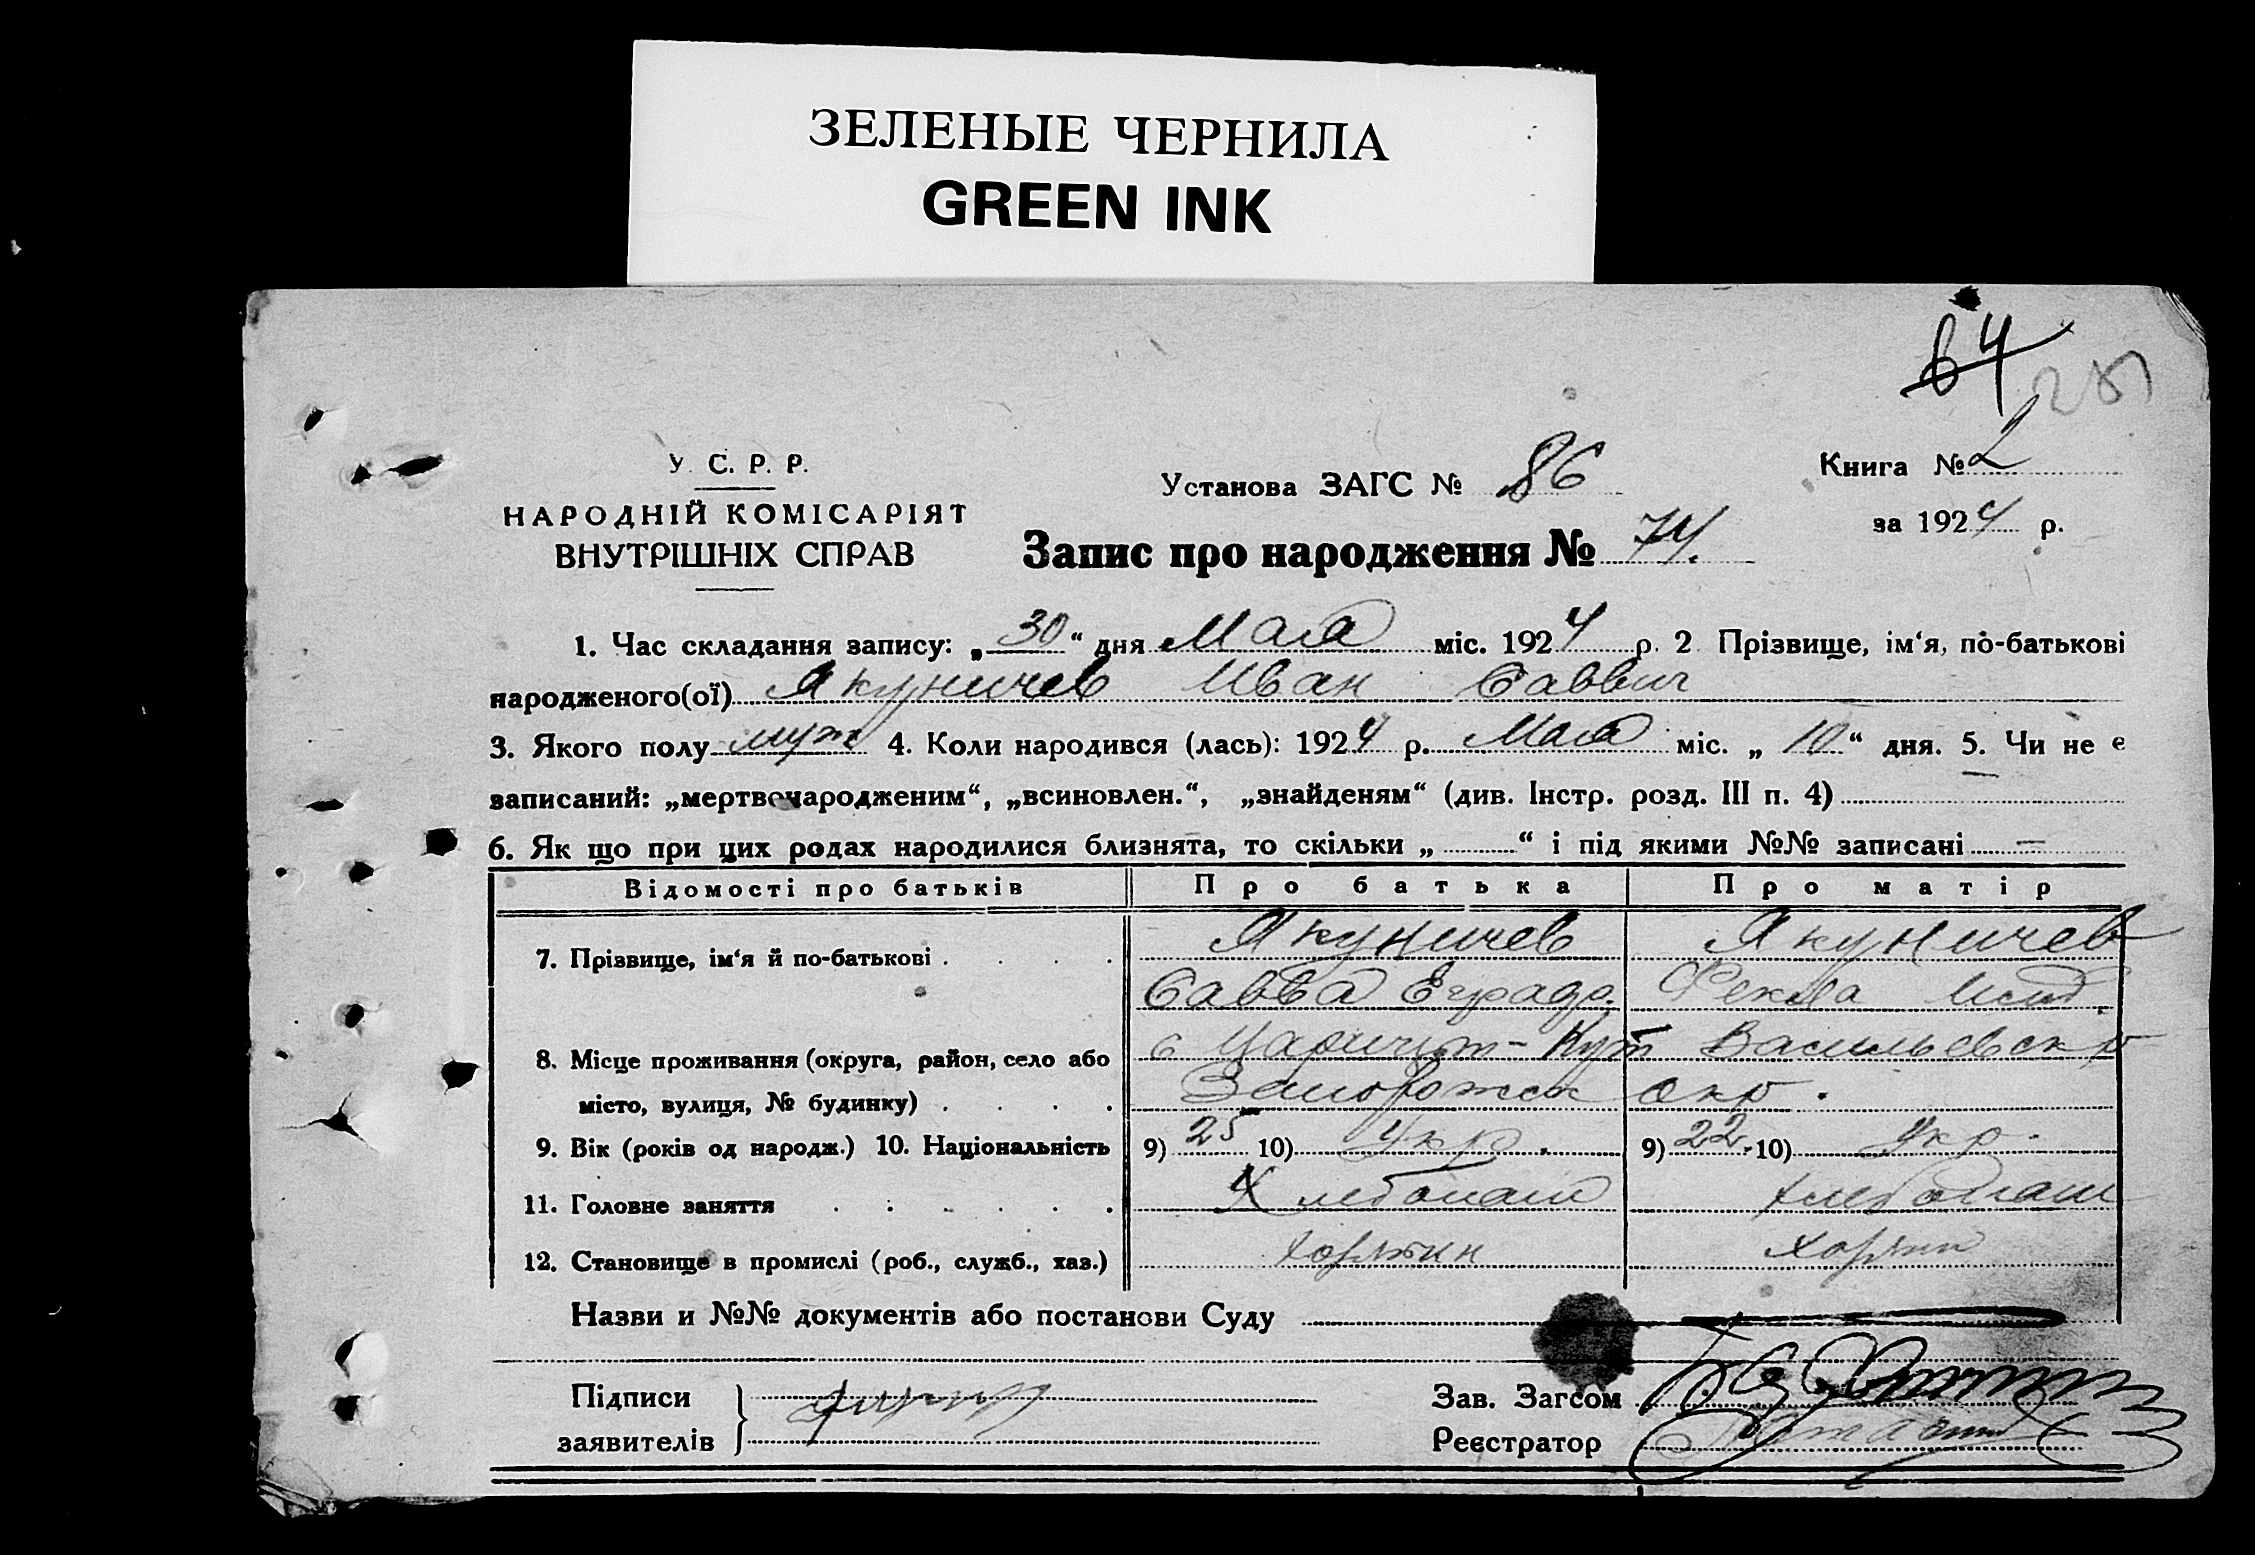 ЗЕЛЕНЫЕ ЧЕРНИЛА
GREEN INK
64
У. С. Р. Р.
НАРОДНІЙ КОМІСАРІЯТ
ВНУТРІШНІХ СПРАВ
Установа ЗАГС № 86
Книга № 2
за 1924 р.
Запис про народження № 74.
1. Час складання запису: „30“ дня Мая міс. 1924 р. 2 Прізвище, ім‘я, по-батькові
народженого(ої) Якуничев Иван Саввич
3. Якого полу муж 4. Коли народився (лась): 1924 р. Мая міс. „10“ дня. 5. Чи не є
записаний: „мертвонародженим“, „всиновлен.“, „знайденям“ (див. Інстр. розд. III п. 4) —
6. Як що при цих родах народилися близнята, то скільки „ “ і під якими №№ записані —
Відомості про батьків Про батька Про матір
7. Прізвище, ім‘я й по-батькові Якуничев Якуничев
Савва Фекла
8. Місце проживання (округа, район, село або с Царицын-Кут Васильевск р
місто, вулиця, № будинку) Запорожск окр.
9. Вік (років од народж.) 10. Національність 9) 25 10) Укр. 9) 22. 10) Укр.
11. Головне заняття Хлебопаш хлебопаш
12. Становище в промислі (роб., служб., хаз.)
Назви и №№ документів або постанови Суду
Підписи
заявителів
Зав. Загсом
Реєстратор